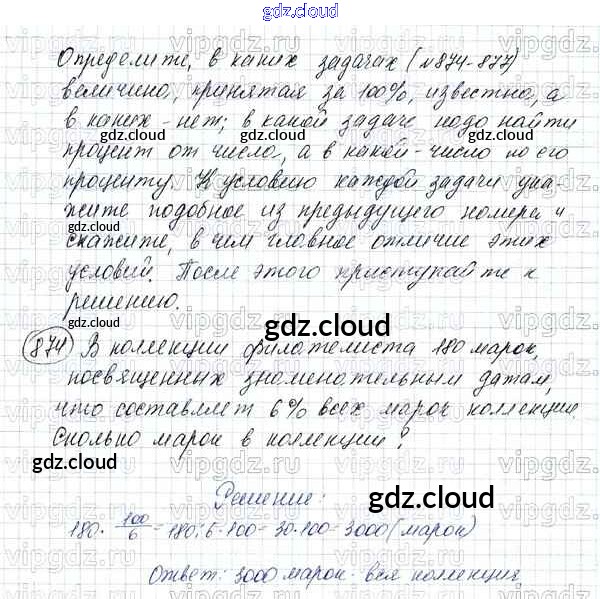 gdz.cloud
Определите, в каких задачах (№874-877)
величина, принятая за 100%, известна, а
в каких - нет; в какой задаче надо найти
процент от числа, а в какой - число по его
проценту. К условию каждой задачи ука-
жите подобное из предыдущего номера и
скажите, в чем главное отличие этих
условий. После этого приступайте к
решению.
gdz.cloud
874 В коллекции филателиста 180 марок,
посвященных знаменательным датам,
что составляет 6% всех марок коллекции.
Сколько марок в коллекции?
Решение:
180 · 100/6 = 180:6·100 = 30·100 = 3000 (марок)
Ответ: 3000 марок - вся коллекция
gdz.cloud